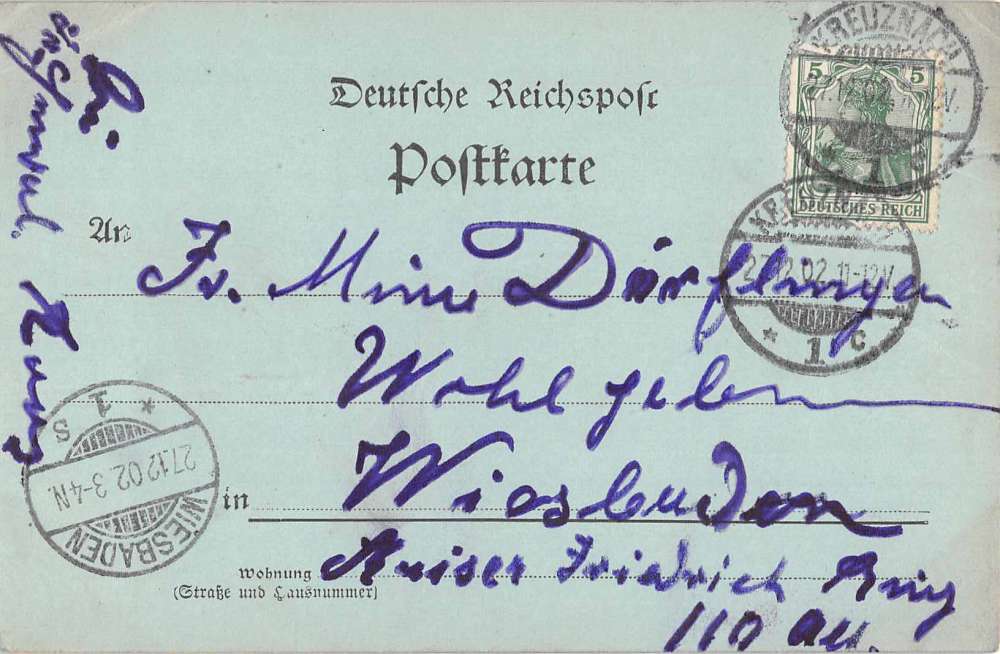 Deutsche Reichspost
Postkarte
An
Fr. Mina Dörflinger
Wohlgeboren
in Wiesbaden
Wohnung
(Straße und Hausnummer)
Kaiser Friedrich Ring
110 
5 5
DEUTSCHES REICH
KREUZNACH
KREUZNACH
27.12.02.11-12V.
* 1 c
WIESBADEN
27.12.02.3-4N.
* 1 s